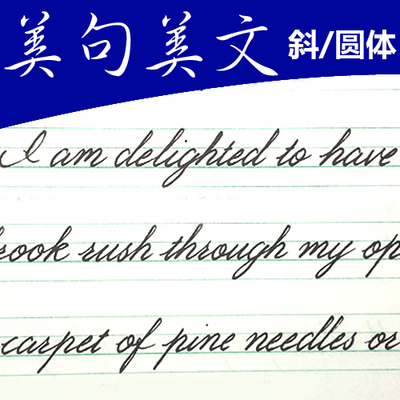 美句美文 斜/圆体
I am delighted to have
rook rush through my op
carpet of pine needles or